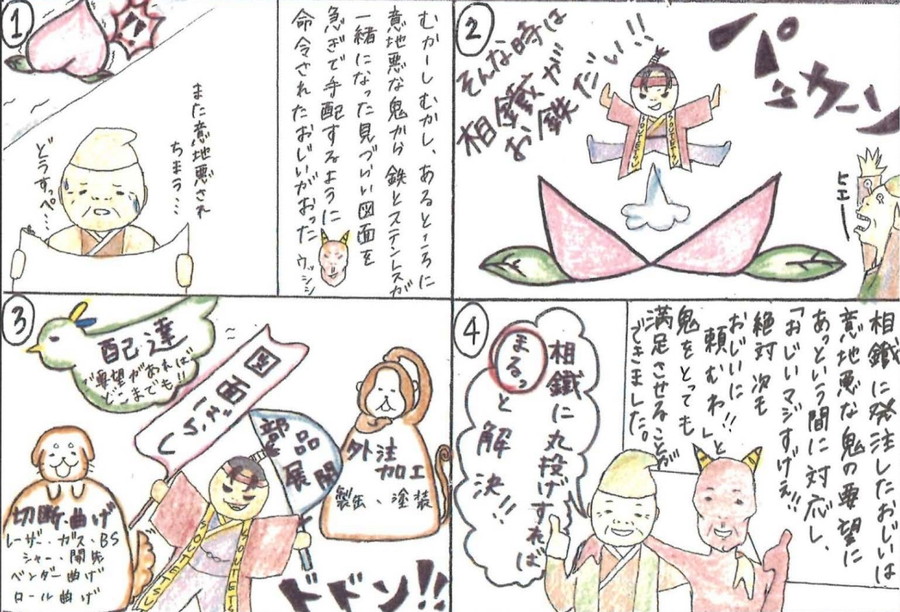 ①
むかーしむかし、あるところに
意地悪な鬼から鉄とステンレスが
一緒になった見づらい図面を
急ぎで手配するように
命令されたおじいがおった
ウッシシ
また意地悪され
ちまう…
どうすっぺ…
②
パッカーン
そんな時は
相鐵が
お鉄だい!!
SOUTETSU
ヒエー
③
配達
ご要望があれば
どこまでも!!
図面バラし
部品
展開
外注
加工
製缶、塗装
切断・曲げ
レーザー・ガス・BS
シャー・開先
ベンダー曲げ
ロール曲げ
SOUTETSU
SOUTETS
ドドン!!
④
相鐵に発注したおじいは
意地悪な鬼の要望に
あっという間に対応し、
「おじいマジすげぇ!!
絶対次も
おじいに!!
頼むわ」と
鬼をとっても
満足させることが
できました。
相鐵に丸投げすれば
まるっ
と解決!!